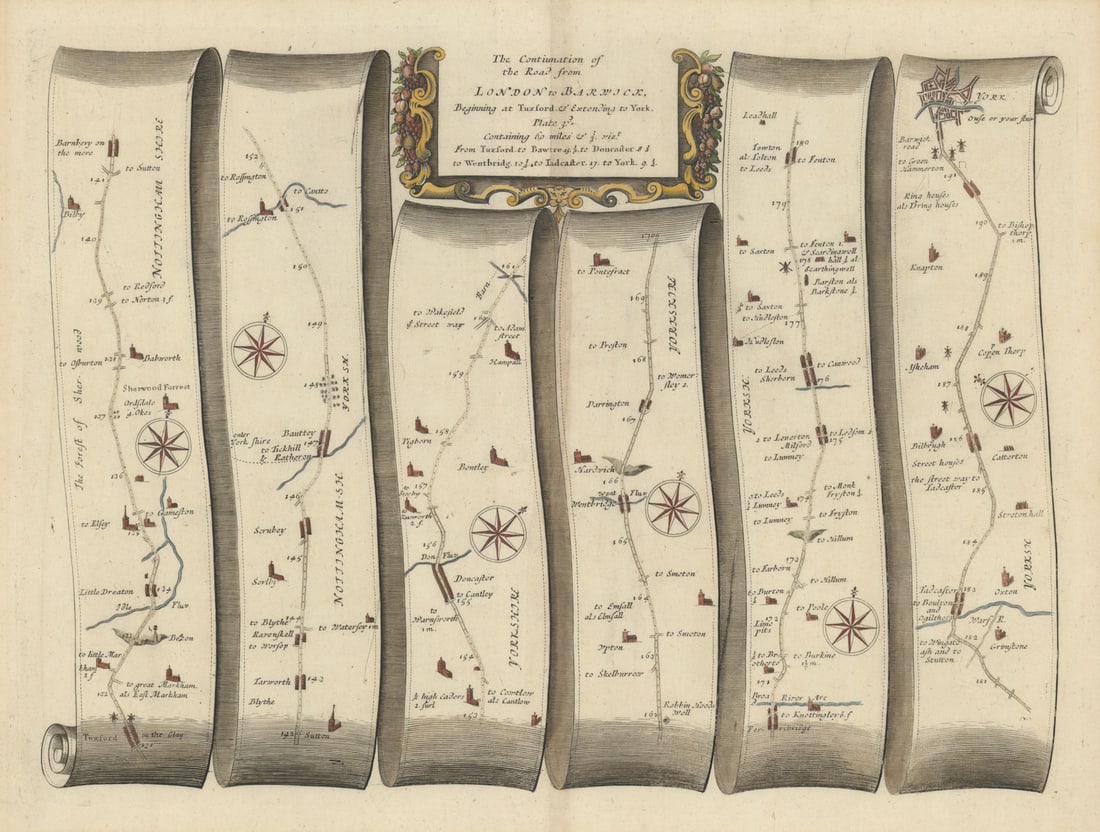 The Continuation of
the Road from
LONDON to BARWICK,
Beginning at Tuxford & Extending to York.
Plate 3d.
Containing 60 miles & ¾ vizt
From Tuxford to Bawtre
to Doncaster
to Wentbridg
to Tadcaster 17. to York. 9
Barnbery on
the more
to Sutton
141
NOTTINGHAM SHIRE
Bilby
140
to Redford
139
to Norton 3 f.
138
Babworth
to Osburton
Sherwood Forrest
Ordsdale
4 Okes
137
The Forest of Sherwood
136
to Gameston
to Elsey
135
Little Dreaton
134
Idle
Flux
Bepon
to little Mar
kham
2 f
to great Markham
als East Markham
132
Tuxford
in the Clay
131
152
to Rossington
to Cantto
151
to Rossington
150
149
148
YORK SH.
enter
York shire
Bauttey
147
to Tickhill
& Ratheron
146
Scrubey
145
NOTTINGHAM-SH.
Sorlby
to Blythe
144
to Watersey 1 m
Raronskell
to Worsop
Tarworth
143
Blythe
142
Sutton
161
Barn
to Wakefield
& Street way
160
to Adam
street
Hampall
159
158
Pigborn
Bentley
157
to
2 f.
156
Don Flux
Doncaster
to Cantley
155
to
Warnsworth
1 m.
YORKSHIRE
154
to Cowtlow
als Cantlow
2 furl
153
170
to Pontefract
169
YORKSHIRE
to Preston
168
to Womer-
sley 2.
Darrington
167
Hardwick
166
Went
Flux
Wentbridge
165
to Smeton
164
to Emsall
als Elmsall
to Smeton
Upton
163
to Skelburrow
Robbin Hoods
Well
162
Leadhall
180
Towton
al: Tolton
to Fenton
to Leeds
179
to Saxton
to Fenton 1.
& Scardingwell
178
hall ¼ al
Scarthingwell
Barston als
Barkstone ¼
to Saxton
to Hudleston
177
Hudleston
to Leeds
to Cawood
Sherborn
176
YORKSH.
to Lenerton
to Ledsom
Milford
175
to Lumney
to Monk
Fryston ½
to Leeds
174
Lumney
to Lumney
to Fryston
to Hillum
173
to Farborn
to Hillum
to Burton
172
to Poole
Lime
pits
to Burkine
1½ m.
171
River Are
to Knottingley 6 f
YORK
Ouse or your flux
Barwick
road
to Green
Hammerton
191
Ring houses
als Dring houses
190
to Bishop
thorp
1 m.
Knapton
189
188
Copen Thorp
Askeham
187
Bilbrugh
186
Catterton
Street houses
the street way to
Tadcaster
185
Streton hall
184
YORKSH
Tadcaster
183
Oxton
to Boulton
and
Ogilthorp
Warf R.
182
to Wingate
ash and to
Stutton
Grimstone
181